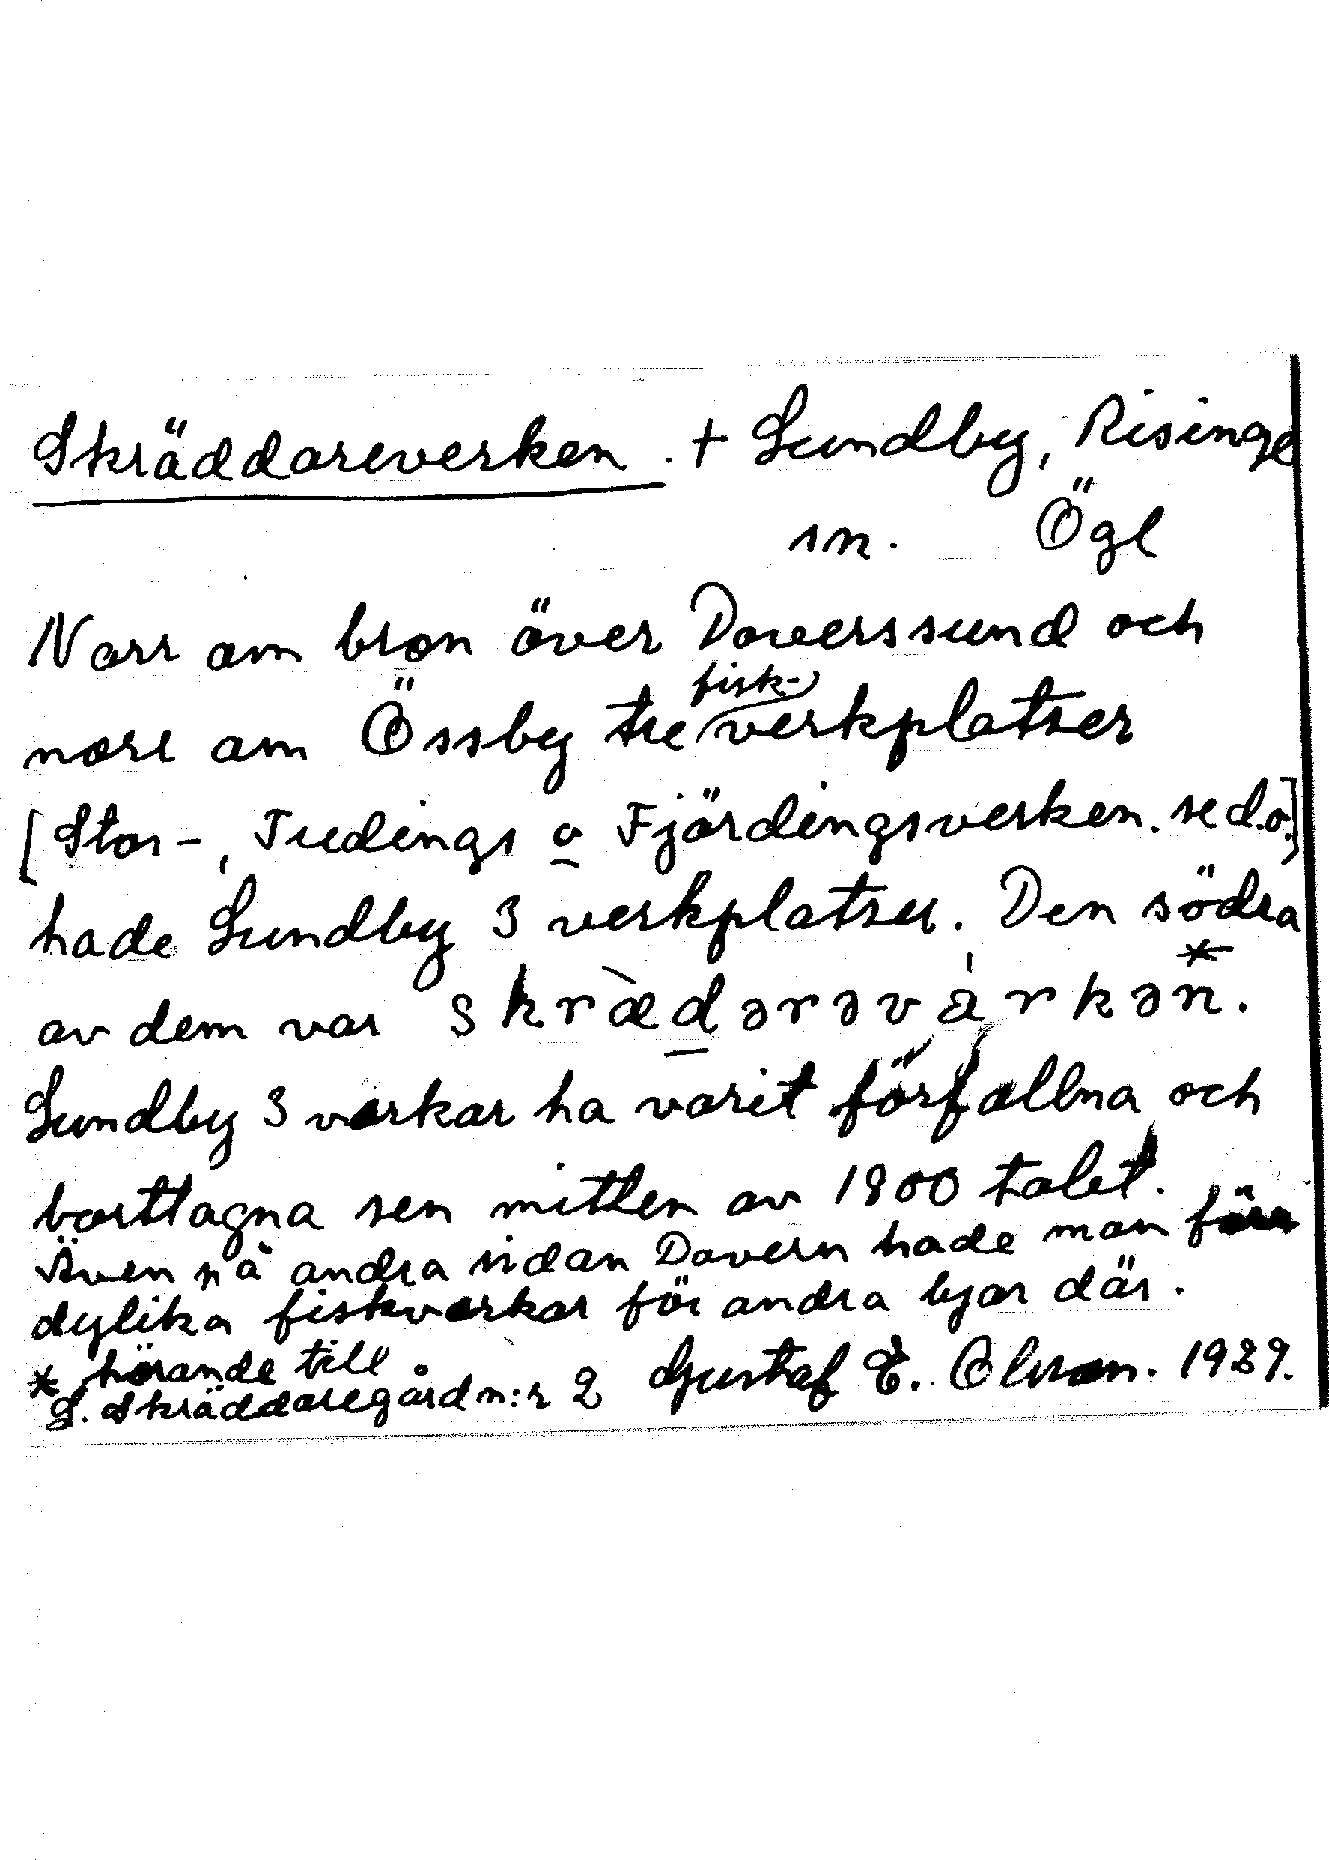 Skräddareverken. + Lundby, Risinge
sn. Ögl
Norr om bron över Doverssund och
norr om Össby tre fisk-verkplatser
[Stor-, Tredings o Fjördingsverken. se d.o.]
hade Lundby 3 verkplatser. Den södra
av dem var skræ̀dərəvàrkən*.
Lundby 3 verkar ha varit förfallna och
borttagna sen mitten av 1800 talet.
Även på andra sidan Dovern hade man förr
dylika fiskverkar för andra byar där.
* hörande till
L. Skräddaregård n:r 2 Gustaf E. Olsson. 1929.